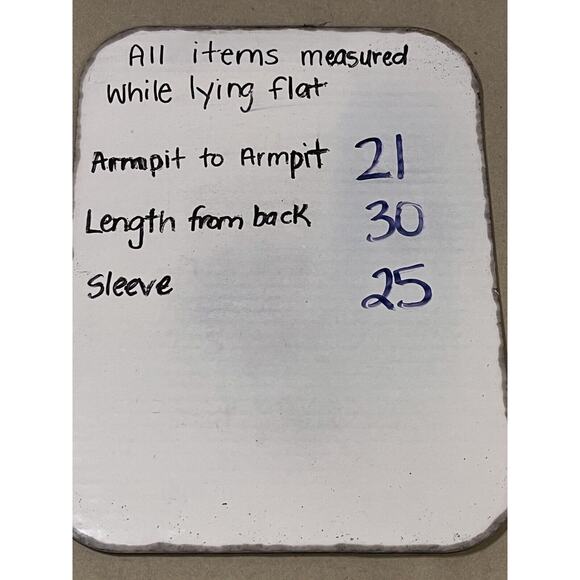 All items measured
while lying flat
Armpit to Armpit 21
Length from back 30
Sleeve 25